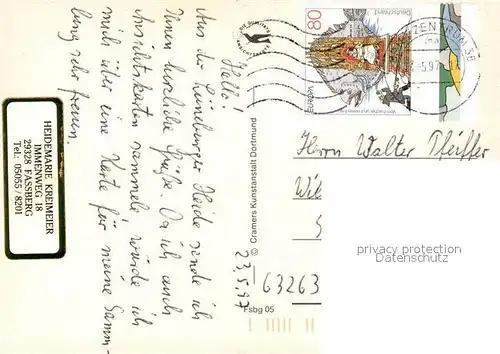 Hello!
Aus der Lüneburger Heide sende ich
Ihnen herzliche Grüße. Da ich auch
Ansichtskarten sammele, würde ich
mich über eine Karte für meine Samm-
lung sehr freuen.
23.5.97
HEIDEMARIE KREIMEIER
IMMENWEG 18
29328 FASSBERG
Tel.: 05055 / 8201
© Cramers Kunstanstalt Dortmund
Fsbg 05
80
Deutschland
EUROPA
ZENTRUM 38
5.97
Herrn Walter Pfeiffer
Wil
63263
privacy protection
Datenschutz